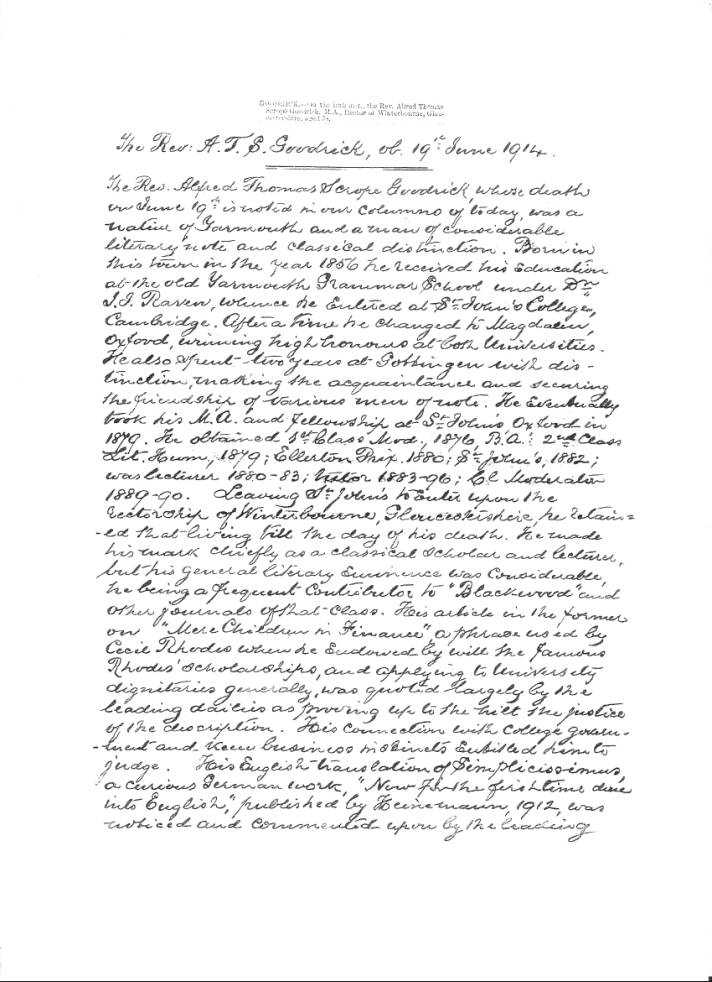 GOODRICK.—On the 19th inst., the Rev. Alfred Thomas
Scrope Goodrick, M.A., Rector of Winterbourne, Glou-
cestershire, aged
The Rev: A. T. S. Goodrick, ob. 19th June 1914.
The Rev. Alfred Thomas Scrope Goodrick, whose death
on June 19th is noted in our columns of today, was a
native of Yarmouth and a man of considerable
literary note and classical distinction. Born in
this town in the year 1856 he received his Education
at the old Yarmouth Grammar School under Dr
J. J. Raven, whence he Entered at St John's College,
Cambridge. After a time he changed to Magdalen,
Oxford, winning high honours at both Universities.
He also spent two years at Gottingen with dis-
tinction, making the acquaintance and securing
the friendship of various men of note. He Eventually
took his M.A. and fellowship at St John's Oxford in
1879. He obtained 1st Class Mod., 1876, B.A: 2nd Class
Lit. Hum., 1879; Ellerton Prix. 1880; St John's, 1882;
was lecturer 1880-83; Tutor 1883-96; Cl. Moderator
1889-90. Leaving St John's to Enter upon the
rectorship of Winterbourne, Gloucestershire, he retain=
-ed that living till the day of his death. He made
his mark chiefly as a classical scholar and lecturer,
but his general literary Eminence was considerable,
he being a frequent Contributor to "Blackwood" and
other journals of that class. His article in the former
on "Mere Children in Finance", a phrase used by
Cecil Rhodes when he Endowed by will the famous
Rhodes' scholarships, and applying to University
dignitaries generally, was quoted largely by the
leading dailies as proving up to the hilt the justice
of the description. His connection with college govern-
-ment and keen business instincts Entitled him to
judge. His English translation of Simplicissimus,
a curious German work, "Now for the first time done
into English," published by Heinemann, 1912, was
noticed and commented upon by the leading